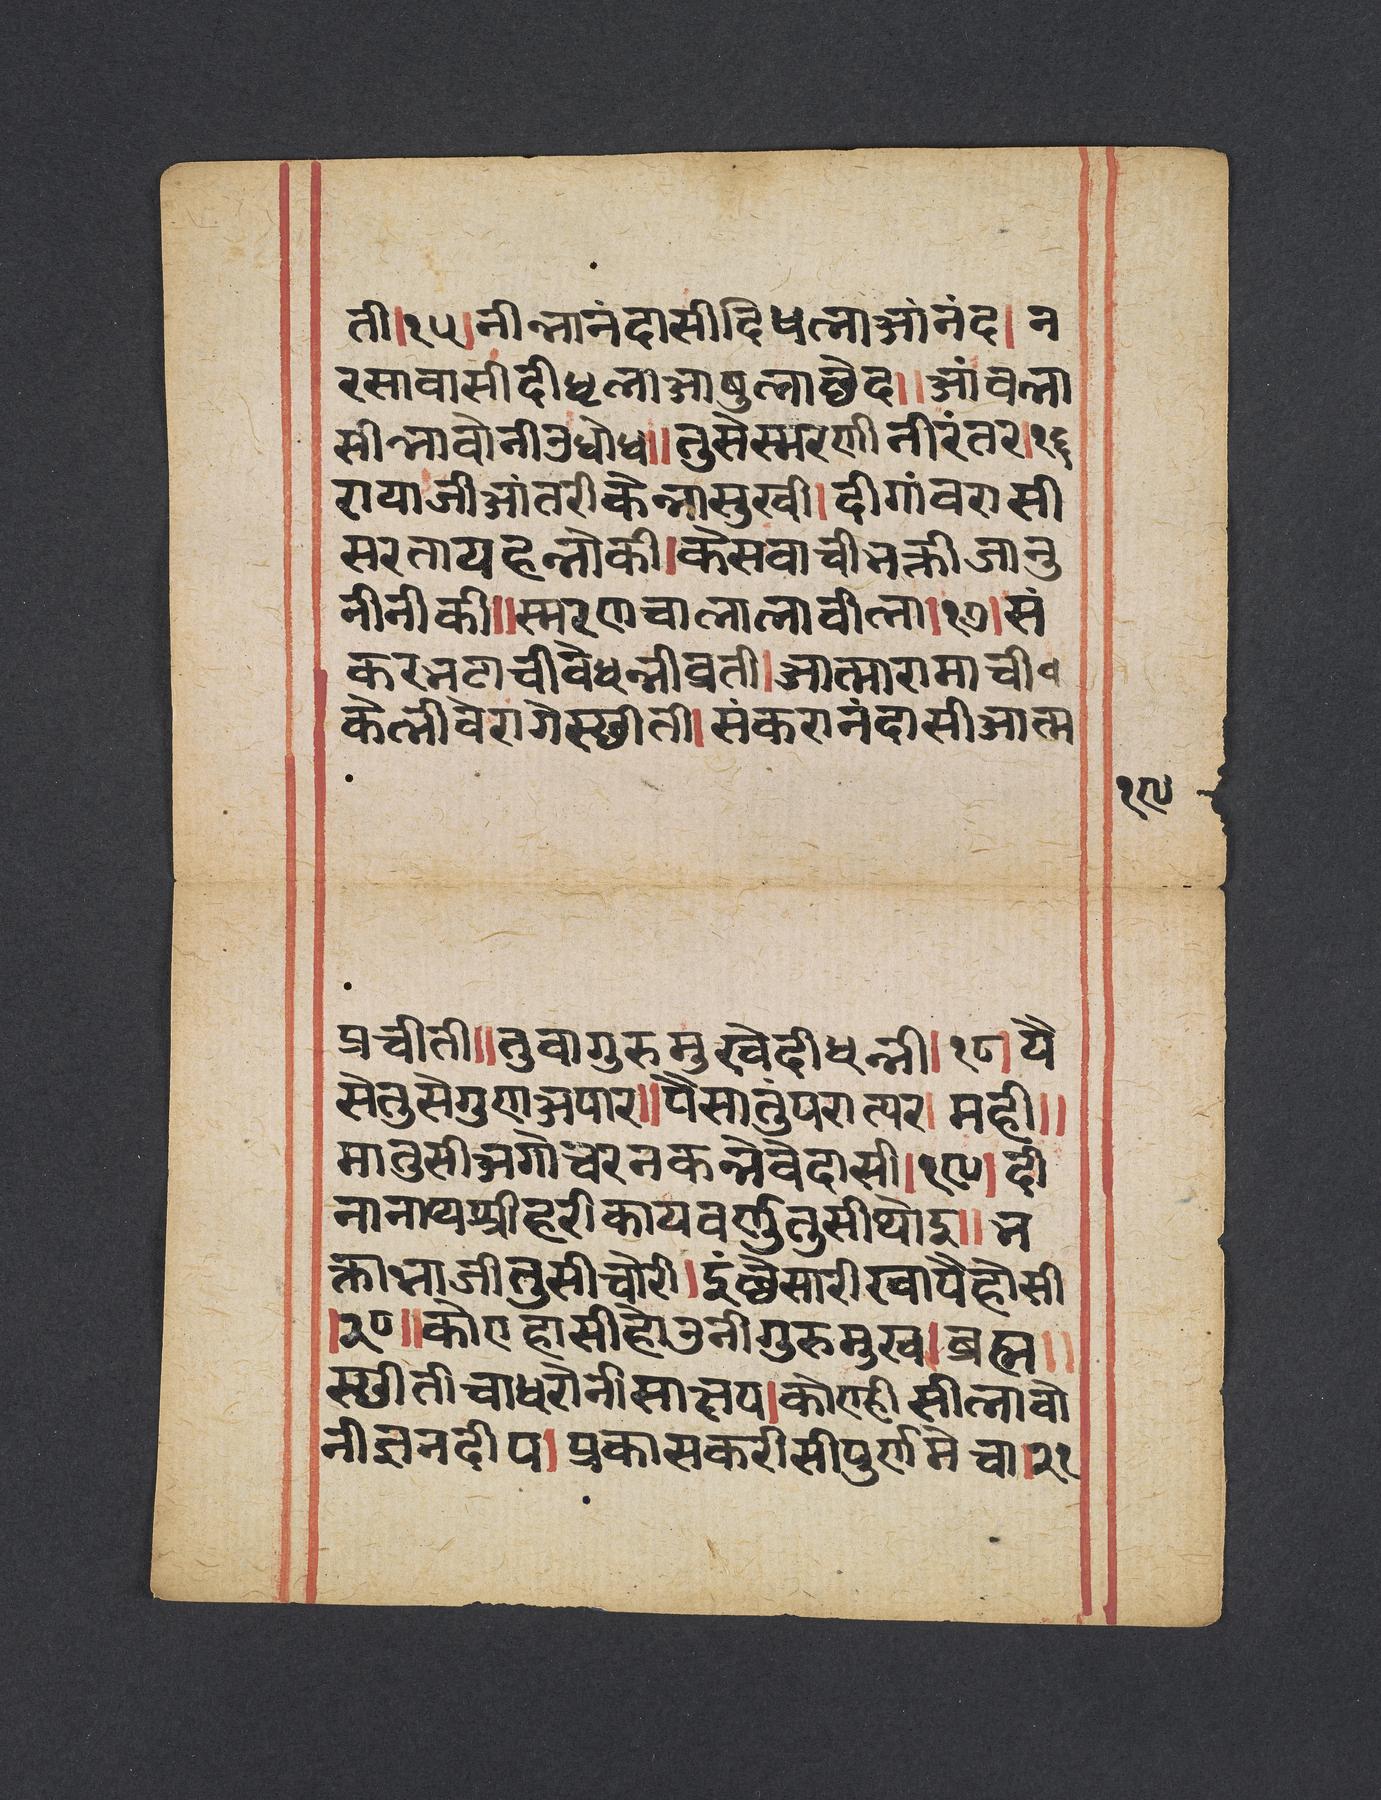 ती।१५।नीत्नानंदासीदिधत्नाआंनंद। न
रसावासीदीधृलाआषुत्नाछैद।।आंवत्ना
सीत्नावोनीउधोध॥तुसेस्मरणी नीरंतर।१६
रायाजीआंतरीकेत्नासुखी। दीगांवरासी
सरतायहत्नोकी।केसवाचीभक्तीजानु
नीनीकी॥स्मरणचालालावीत्ना।१७।सं
करभटाचीवेधत्नीव्रती।आत्मारामाचीव
केत्नीवेरागेस्छीती।संकरानंदासीआत्म
१९
प्रचीती॥तुवागुरुमुखेदीधत्नी।१८।पै
सेतुसेगुणअपार॥पैसातुंपरात्पर। मही॥
मातुसीअगोचरनकत्नेवेदासी।१९।दी
नानाथश्रीहरीकायवर्णुतुसीथोरु॥भ
क्ताभाजीतुसीचोरी।दुंछैसारीखापैहोसी
।२०॥कोणहासीहोउनीगुरुमुख।ब्रह्म॥
स्छीतीचाधरोनीसाक्षप।कोणहीसीत्नावो
नीज्ञानदीप।प्रकासकरीसीपुर्णमेचा।२१